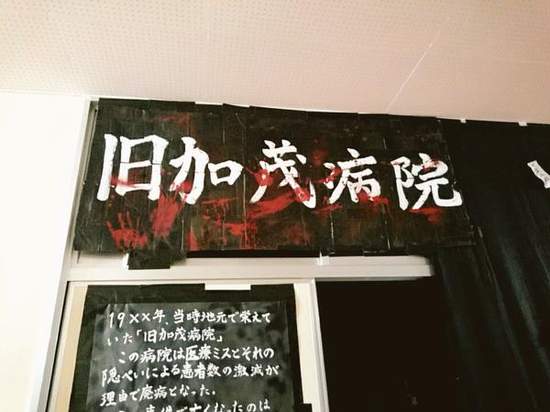 旧加茂病院
19××年、当時地元で栄えて
いた「旧加茂病院」
この病院は医療ミスとそれの
隠ぺいによる患者数の激減が
理由で廃病となった。
亡くなったのは